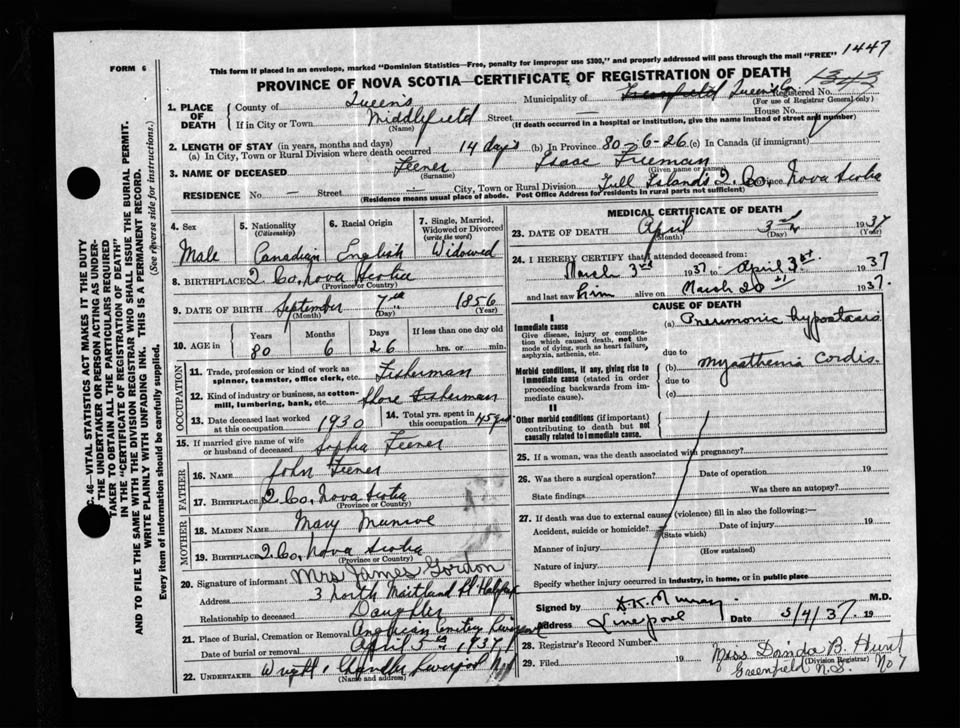 1447
FORM 6
This form if placed in an envelope, marked "Dominion Statistics—Free, penalty for improper use $300," and properly addressed will pass through the mail "FREE"
PROVINCE OF NOVA SCOTIA—CERTIFICATE OF REGISTRATION OF DEATH
1343
1. PLACE OF DEATH County of Queens Municipality of Greenfield Queens Co Registered No.
(For use of Registrar General only)
If in City or Town Middlefield Street — House No.
(Name) (If death occurred in a hospital or institution, give the name instead of street and number)
2. LENGTH OF STAY (in years, months and days)
(a) In City, Town or Rural Division where death occurred 14 days (b) In Province 80-6-26 (c) In Canada (if immigrant)
3. NAME OF DECEASED Feener Isaac Freeman
(Surname) (Given name or names)
RESIDENCE No. — Street — City, Town or Rural Division Gull Islands Q. Co. Province Nova Scotia
(Residence means usual place of abode. Post Office Address for residents in rural parts not sufficient)
4. Sex 5. Nationality (Citizenship) 6. Racial Origin 7. Single, Married, Widowed or Divorced (write the word)
Male Canadian English Widowed
8. BIRTHPLACE Q. Co, Nova Scotia
(Province or Country)
9. DATE OF BIRTH September 7th 1856
(Month) (Day) (Year)
10. AGE in Years Months Days If less than one day old
80 6 26 hrs. or min.
OCCUPATION
11. Trade, profession or kind of work as spinner, teamster, office clerk, etc. Fisherman
12. Kind of industry or business, as cotton-mill, lumbering, bank, etc. Shore Fisherman
13. Date deceased last worked at this occupation 1930 14. Total yrs. spent in this occupation 45 yrs
15. If married give name of wife or husband of deceased Sophia Feener
FATHER
16. NAME John Feener
17. BIRTHPLACE Q. Co, Nova Scotia
MOTHER
18. MAIDEN NAME Mary Munroe
19. BIRTHPLACE Q. Co, Nova Scotia
(Province or Country)
20. Signature of informant Mrs James Gordon
Address 3 North Maitland St Halifax
Relationship to deceased Daughter
21. Place of Burial, Cremation or Removal Anglican Cemetery Liverpool
Date of burial or removal April 5th 1937
22. UNDERTAKER Wright Liverpool N.S
(Name and address)
MEDICAL CERTIFICATE OF DEATH
23. DATE OF DEATH April 3rd 1937
(Month) (Day) (Year)
24. I HEREBY CERTIFY that I attended deceased from:
March 3rd 1937 to April 3rd 1937
and last saw him alive on March 20th 1937.
CAUSE OF DEATH
I
Immediate cause
Give disease, injury or complication which caused death, not the mode of dying, such as heart failure, asphyxia, asthenia, etc.
(a) Pneumonic hypostasis
due to
Morbid conditions, if any, giving rise to immediate cause (stated in order proceeding backwards from immediate cause).
(b) Myasthenia Cordis.
due to
(c)
II
Other morbid conditions (if important) contributing to death but not causally related to immediate cause.
25. If a woman, was the death associated with pregnancy?
26. Was there a surgical operation? Date of operation 19
State findings Was there an autopsy?
27. If death was due to external causes (violence) fill in also the following:—
Accident, suicide or homicide? Date of injury 19
(State which)
Manner of injury
(How sustained)
Nature of injury
Specify whether injury occurred in industry, in home, or in public place
Signed by D.K. Murray M.D.
Address Liverpool Date 5/4/37. 19
28. Registrar's Record Number
Miss Dorida B. Hunt
29. Filed 19 (Division Registrar)
Greenfield N.S. No 7
C. 46—VITAL STATISTICS ACT MAKES IT THE DUTY
THE UNDERTAKER OR PERSON ACTING AS UNDER-
TAKER TO OBTAIN ALL THE PARTICULARS REQUIRED
IN THE "CERTIFICATE OF REGISTRATION OF DEATH"
AND TO FILE THE SAME WITH THE DIVISION REGISTRAR WHO SHALL ISSUE THE BURIAL PERMIT.
WRITE PLAINLY WITH UNFADING INK. THIS IS A PERMANENT RECORD.
Every item of information should be carefully supplied. (See reverse side for instructions.)